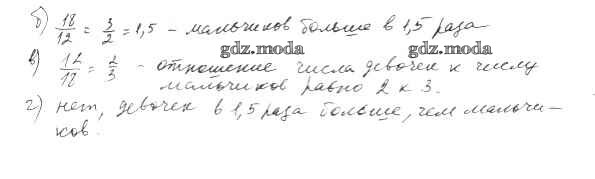 б) 18/12 = 3/2 = 1,5 - мальчиков больше в 1,5 раза
gdz.moda
gdz.moda
в) 12/18 = 2/3 - отношение числа девочек к числу
мальчиков равно 2 к 3.
gdz.moda
gdz.moda
г) нет, девочек в 1,5 раза больше, чем мальчи-
ков.